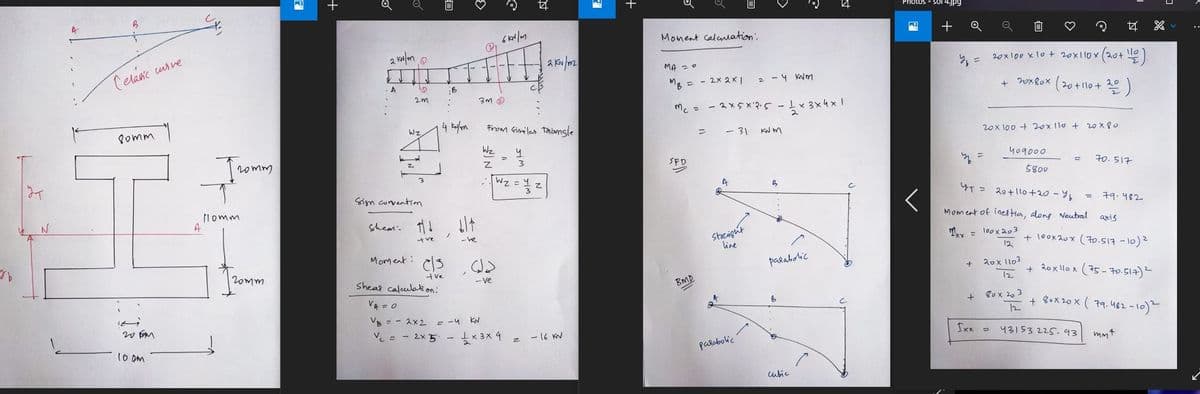 A
B
C
( elastic curve
80mm
20mm
110mm
N
A
A
20mm
20 mm
100m
2 kN/m
6 kN/m
2 kN/m
A
B
C
2m
3m
Wz
4 kN/m
From Similar Triangle
Wz
Z
=
4
3
z
3
∴ Wz = 4/3 z
Sign convention
Shear: ↑|↓ , ↓|↑
+ve
-ve
Moment:
+ve
-ve
Shear calculation:
VA = 0
VB = - 2x2 = -4 kN
VC = - 2x5 - 1/2 x 3x 4 = - 16 kN
Moment Calculation:
MA = 0
MB = - 2x 2x1 = - 4 kNm
MC = - 2x5x2.5 - 1/2 x 3x4x1
= - 31 kNm
SFD
A
B
C
Straight
line
parabolic
BMD
A
B
C
parabolic
cubic
Photos - sol 4.jpg
yb = 20x100x10 + 20x110x (20+ 110/2)
+ 20x80x (20+110+ 20/2)
20x100 + 20x110 + 20x80
yb = 409000/5800 = 70.517
yT = 20+110+20 - yb = 79.482
Moment of inertia, along Neutral axis
Ixx = 100x20³/12 + 100x20x (70.517-10)²
+ 20x110³/12 + 20x110x (75-70.517)²
+ 80x20³/12 + 80x20x (79.482-10)²
Ixx = 43153225.93 mm⁴